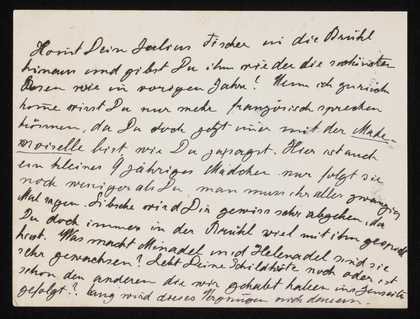 Komt Dein Julius Fischer in die Brühl
hinaus und gibst Du ihm wieder die schönsten
Rosen wie im vorigen Jahre? Wenn ich zurück
kome wirst Du nur mehr französisch sprechen
können, da Du doch jetzt imer mit der Made-
moiselle bist wie Du sagst. Hier ist auch
ein kleines 4 jähriges Mädchen nur folgt sie
noch weniger als Du man muss ihr alles zwanzig
Mal sagen. Libsche wird Dir gewiss sehr abgehen, da
Du doch immer in der Brühl viel mit ihm gespielt
hast. Was macht Minadel und Helenadel sind sie
sehr gewachsen? Lebt Deine Schildkröte noch oder ist
schon den anderen die wir gehabt haben ins Jenseits
gefolgt? Lang wird dieses Vergnügen nicht dauern.